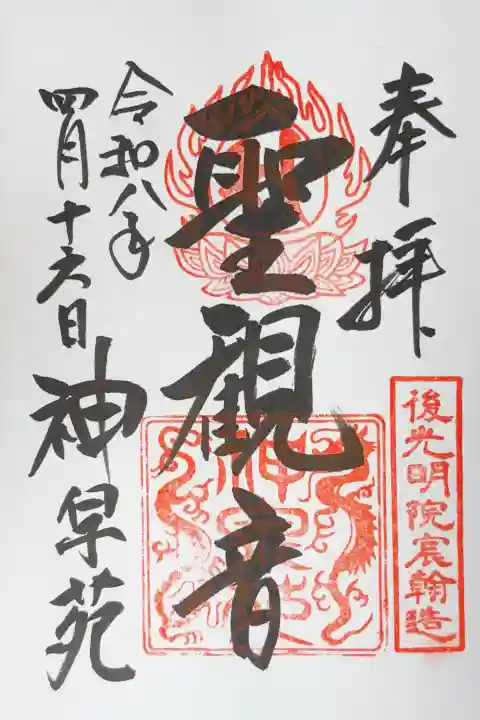 奉拝
後光明院宸翰造
聖觀音
令和八年
四月十六日
神泉苑